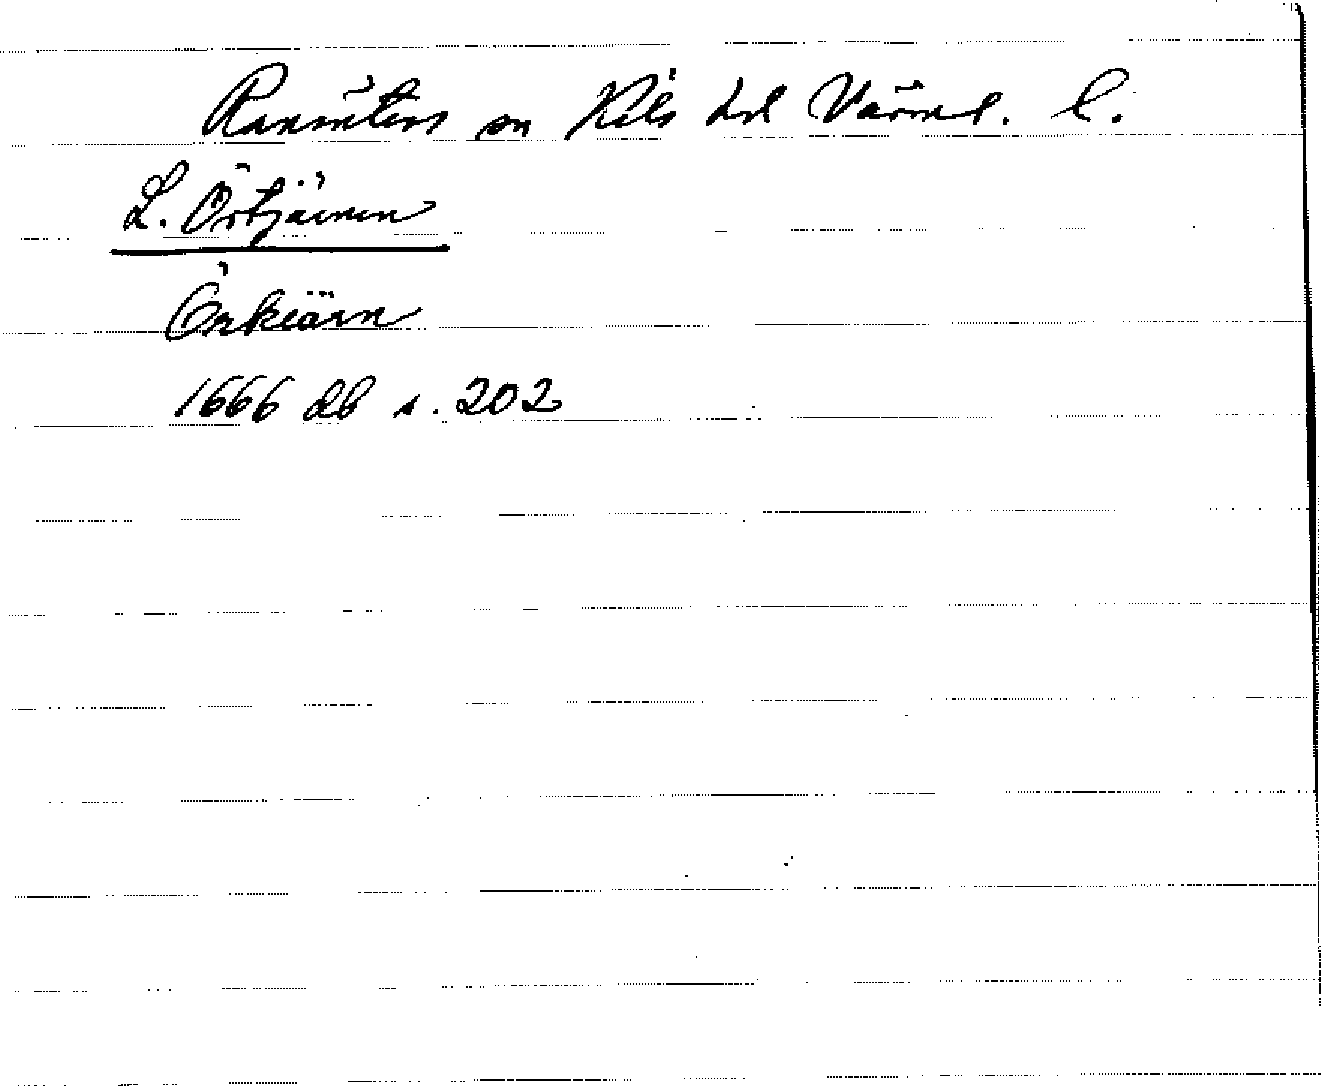 Ransäters sn Kils hd Värml. l.
L. Örtjärnen
Örkiärn
1666 Db s. 202